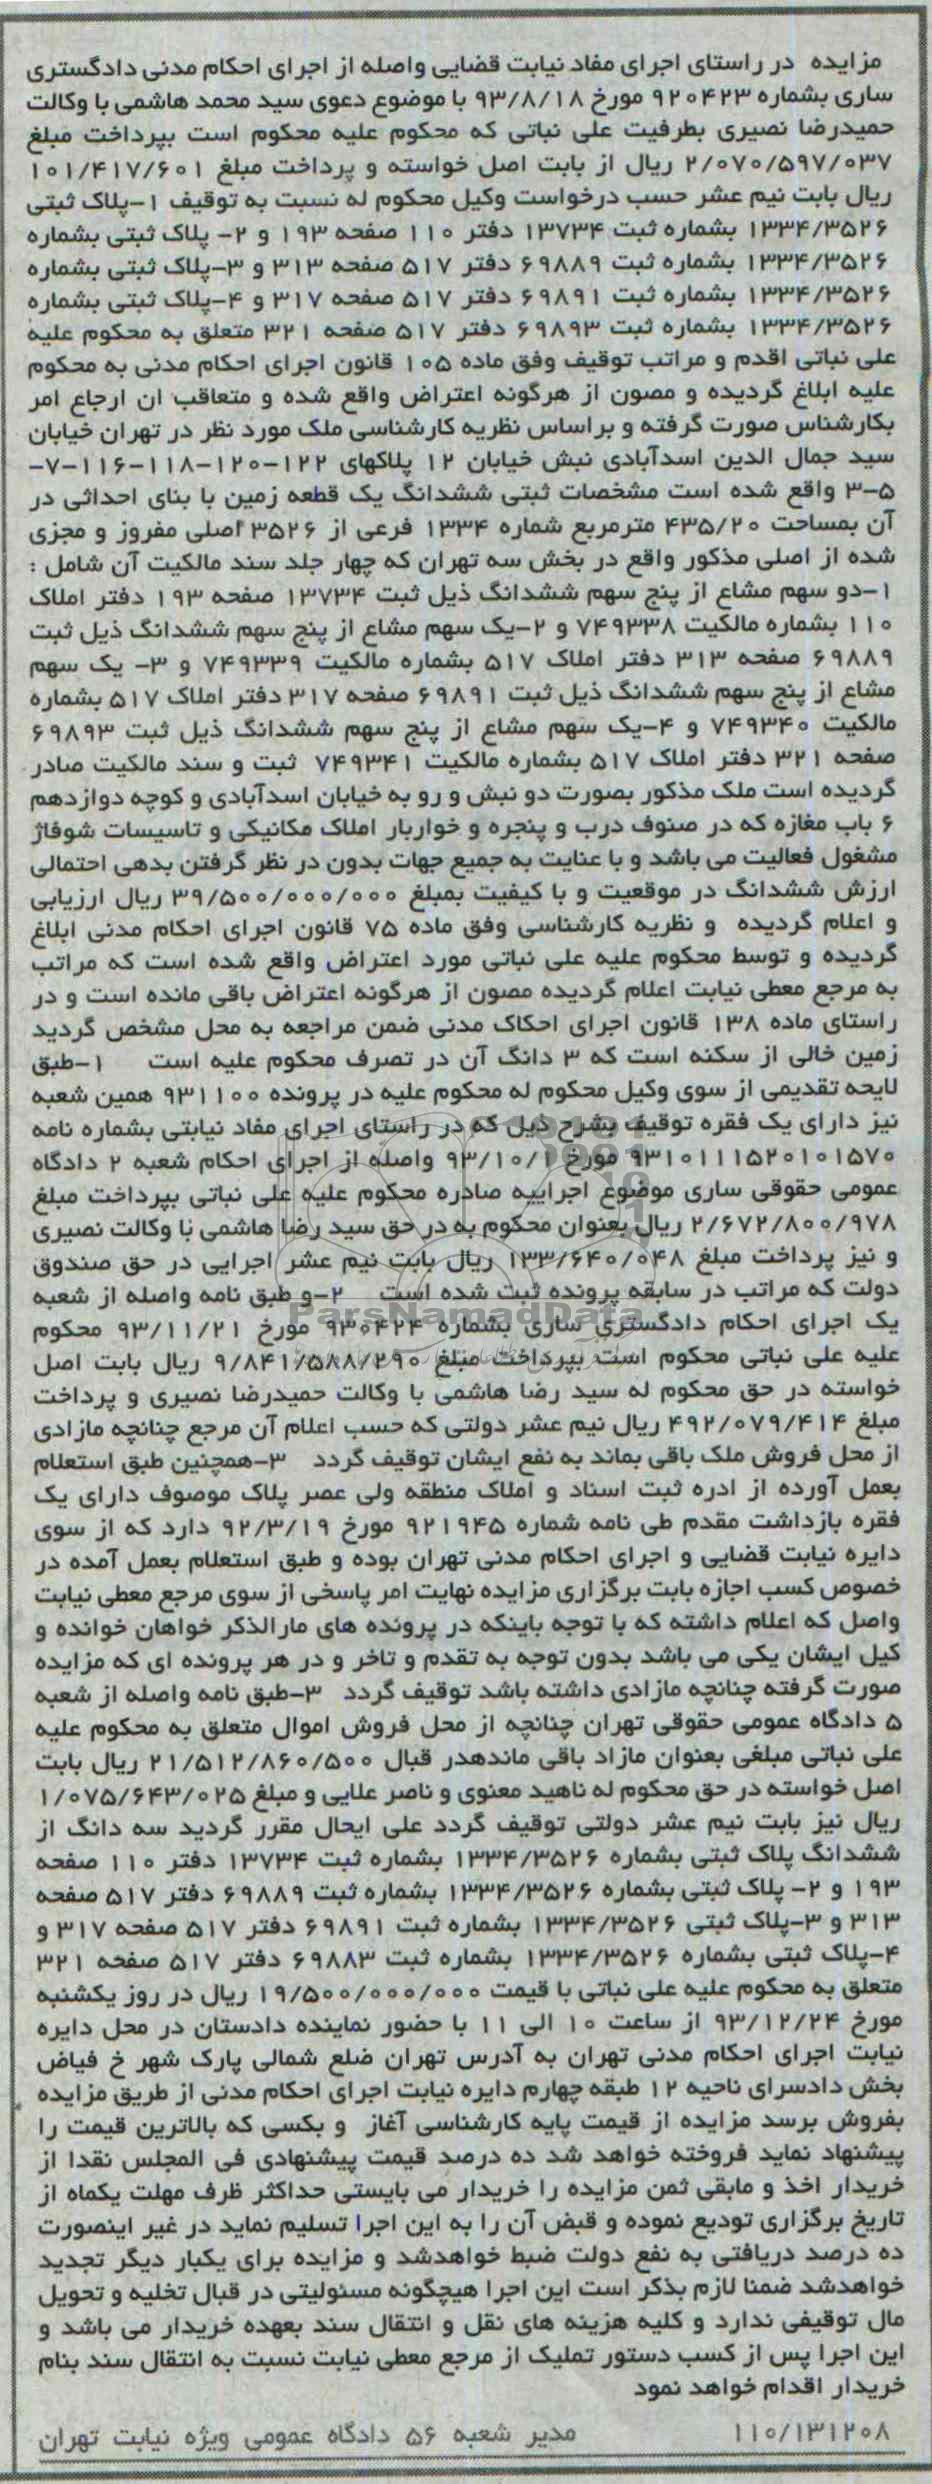 مزایده در راستای اجرای مفاد نیابت قضایی واصله از اجرای احکام مدنی دادگستری
ساری بشماره ۹۲۰۴۲۳ مورخ ۹۳/۸/۱۸ با موضوع دعوی سید محمد هاشمی با وکالت
حمیدرضا نصیری بطرفیت علی نباتی که محکوم علیه محکوم است بپرداخت مبلغ
۲/۰۷۰/۵۹۷/۰۳۷ ریال از بابت اصل خواسته و پرداخت مبلغ ۱۰۱/۴۱۷/۶۰۱
ریال بابت نیم عشر حسب درخواست وکیل محکوم له نسبت به توقیف ۱-پلاک ثبتی
۱۳۳۴/۳۵۲۶ بشماره ثبت ۱۳۷۳۴ دفتر ۱۱۰ صفحه ۱۹۳ و ۲- پلاک ثبتی بشماره
۱۳۳۴/۳۵۲۶ بشماره ثبت ۶۹۸۸۹ دفتر ۵۱۷ صفحه ۳۱۳ و ۳-پلاک ثبتی بشماره
۱۳۳۴/۳۵۲۶ بشماره ثبت ۶۹۸۹۱ دفتر ۵۱۷ صفحه ۳۱۷ و ۴-پلاک ثبتی بشماره
۱۳۳۴/۳۵۲۶ بشماره ثبت ۶۹۸۹۳ دفتر ۵۱۷ صفحه ۳۲۱ متعلق به محکوم علیه
علی نباتی اقدم و مراتب توقیف وفق ماده ۱۰۵ قانون اجرای احکام مدنی به محکوم
علیه ابلاغ گردیده و مصون از هرگونه اعتراض واقع شده و متعاقب ان ارجاع امر
بکارشناس صورت گرفته و براساس نظریه کارشناسی ملک مورد نظر در تهران خیابان
سید جمال الدین اسدآبادی نبش خیابان ۱۲ پلاکهای ۱۲۲-۱۲۰-۱۱۸-۱۱۶-۷-
۵-۳ واقع شده است مشخصات ثبتی ششدانگ یک قطعه زمین با بنای احداثی در
آن بمساحت ۴۳۵/۲۰ مترمربع شماره ۱۳۳۴ فرعی از ۳۵۲۶ اصلی مفروز و مجزی
شده از اصلی مذکور واقع در بخش سه تهران که چهار جلد سند مالکیت آن شامل :
۱-دو سهم مشاع از پنج سهم ششدانگ ذیل ثبت ۱۳۷۳۴ صفحه ۱۹۳ دفتر املاک
۱۱۰ بشماره مالکیت ۷۴۹۳۳۸ و ۲-یک سهم مشاع از پنج سهم ششدانگ ذیل ثبت
۶۹۸۸۹ صفحه ۳۱۳ دفتر املاک ۵۱۷ بشماره مالکیت ۷۴۹۳۳۹ و ۳- یک سهم
مشاع از پنج سهم ششدانگ ذیل ثبت ۶۹۸۹۱ صفحه ۳۱۷ دفتر املاک ۵۱۷ بشماره
مالکیت ۷۴۹۳۴۰ و ۴-یک سهم مشاع از پنج سهم ششدانگ ذیل ثبت ۶۹۸۹۳
صفحه ۳۲۱ دفتر املاک ۵۱۷ بشماره مالکیت ۷۴۹۳۴۱ ثبت و سند مالکیت صادر
گردیده است ملک مذکور بصورت دو نبش و رو به خیابان اسدآبادی و کوچه دوازدهم
۶ باب مغازه که در صنوف درب و پنجره و خواربار املاک مکانیکی و تاسیسات شوفاژ
مشغول فعالیت می باشد و با عنایت به جمیع جهات بدون در نظر گرفتن بدهی احتمالی
ارزش ششدانگ در موقعیت و با کیفیت بمبلغ ۳۹/۵۰۰/۰۰۰/۰۰۰ ریال ارزیابی
و اعلام گردیده و نظریه کارشناسی وفق ماده ۷۵ قانون اجرای احکام مدنی ابلاغ
گردیده و توسط محکوم علیه علی نباتی مورد اعتراض واقع شده است که مراتب
به مرجع معطی نیابت اعلام گردیده مصون از هرگونه اعتراض باقی مانده است و در
راستای ماده ۱۳۸ قانون اجرای احکاک مدنی ضمن مراجعه به محل مشخص گردید
زمین خالی از سکنه است که ۳ دانگ آن در تصرف محکوم علیه است ۱-طبق
لایحه تقدیمی از سوی وکیل محکوم له محکوم علیه در پرونده ۹۳۱۱۰۰ همین شعبه
نیز دارای یک فقره توقیف بشرح ذیل که در راستای اجرای مفاد نیابتی بشماره نامه
۹۳۱۰۱۱۱۵۲۰۱۰۱۵۷۰ مورخ ۹۳/۱۰/۱ واصله از اجرای احکام شعبه ۲ دادگاه
عمومی حقوقی ساری موضوع اجراییه صادره محکوم علیه علی نباتی بپرداخت مبلغ
۲/۶۷۲/۸۰۰/۹۷۸ ریال بعنوان محکوم به در حق سید رضا هاشمی با وکالت نصیری
و نیز پرداخت مبلغ ۱۳۳/۶۴۰/۰۴۸ ریال بابت نیم عشر اجرایی در حق صندوق
دولت که مراتب در سابقه پرونده ثبت شده است ۲-و طبق نامه واصله از شعبه
یک اجرای احکام دادگستری ساری بشماره ۹۳۰۴۲۴ مورخ ۹۳/۱۱/۲۱ محکوم
علیه علی نباتی محکوم است بپرداخت مبلغ ۹/۸۴۱/۵۸۸/۲۹۰ ریال بابت اصل
خواسته در حق محکوم له سید رضا هاشمی با وکالت حمیدرضا نصیری و پرداخت
مبلغ ۴۹۲/۰۷۹/۴۱۴ ریال نیم عشر دولتی که حسب اعلام آن مرجع چنانچه مازادی
از محل فروش ملک باقی بماند به نفع ایشان توقیف گردد ۳-همچنین طبق استعلام
بعمل آورده از ادره ثبت اسناد و املاک منطقه ولی عصر پلاک موصوف دارای یک
فقره بازداشت مقدم طی نامه شماره ۹۲۱۹۴۵ مورخ ۹۲/۳/۱۹ دارد که از سوی
دایره نیابت قضایی و اجرای احکام مدنی تهران بوده و طبق استعلام بعمل آمده در
خصوص کسب اجازه بابت برگزاری مزایده نهایت امر پاسخی از سوی مرجع معطی نیابت
واصل که اعلام داشته که با توجه باینکه در پرونده های مارالذکر خواهان خوانده و
کیل ایشان یکی می باشد بدون توجه به تقدم و تاخر و در هر پرونده ای که مزایده
صورت گرفته چنانچه مازادی داشته باشد توقیف گردد ۳-طبق نامه واصله از شعبه
۵ دادگاه عمومی حقوقی تهران چنانچه از محل فروش اموال متعلق به محکوم علیه
علی نباتی مبلغی بعنوان مازاد باقی ماندهدر قبال ۲۱/۵۱۲/۸۶۰/۵۰۰ ریال بابت
اصل خواسته در حق محکوم له ناهید معنوی و ناصر علایی و مبلغ ۱/۰۷۵/۶۴۳/۰۲۵
ریال نیز بابت نیم عشر دولتی توقیف گردد علی ایحال مقرر گردید سه دانگ از
ششدانگ پلاک ثبتی بشماره ۱۳۳۴/۳۵۲۶ بشماره ثبت ۱۳۷۳۴ دفتر ۱۱۰ صفحه
۱۹۳ و ۲- پلاک ثبتی بشماره ۱۳۳۴/۳۵۲۶ بشماره ثبت ۶۹۸۸۹ دفتر ۵۱۷ صفحه
۳۱۳ و ۳-پلاک ثبتی ۱۳۳۴/۳۵۲۶ بشماره ثبت ۶۹۸۹۱ دفتر ۵۱۷ صفحه ۳۱۷ و
۴-پلاک ثبتی بشماره ۱۳۳۴/۳۵۲۶ بشماره ثبت ۶۹۸۸۳ دفتر ۵۱۷ صفحه ۳۲۱
متعلق به محکوم علیه علی نباتی با قیمت ۱۹/۵۰۰/۰۰۰/۰۰۰ ریال در روز یکشنبه
مورخ ۹۳/۱۲/۲۴ از ساعت ۱۰ الی ۱۱ با حضور نماینده دادستان در محل دایره
نیابت اجرای احکام مدنی تهران به آدرس تهران ضلع شمالی پارک شهر خ فیاض
بخش دادسرای ناحیه ۱۲ طبقه چهارم دایره نیابت اجرای احکام مدنی از طریق مزایده
بفروش برسد مزایده از قیمت پایه کارشناسی آغاز و بکسی که بالاترین قیمت را
پیشنهاد نماید فروخته خواهد شد ده درصد قیمت پیشنهادی فی المجلس نقدا از
خریدار اخذ و مابقی ثمن مزایده را خریدار می بایستی حداکثر ظرف مهلت یکماه از
تاریخ برگزاری تودیع نموده و قبض آن را به این اجرا تسلیم نماید در غیر اینصورت
ده درصد دریافتی به نفع دولت ضبط خواهدشد و مزایده برای یکبار دیگر تجدید
خواهدشد ضمنا لازم بذکر است این اجرا هیچگونه مسئولیتی در قبال تخلیه و تحویل
مال توقیفی ندارد و کلیه هزینه های نقل و انتقال سند بعهده خریدار می باشد و
این اجرا پس از کسب دستور تملیک از مرجع معطی نیابت نسبت به انتقال سند بنام
خریدار اقدام خواهد نمود
۱۱۰/۱۳۱۲۰۸ مدیر شعبه ۵۶ دادگاه عمومی ویژه نیابت تهران
ParsNamadData